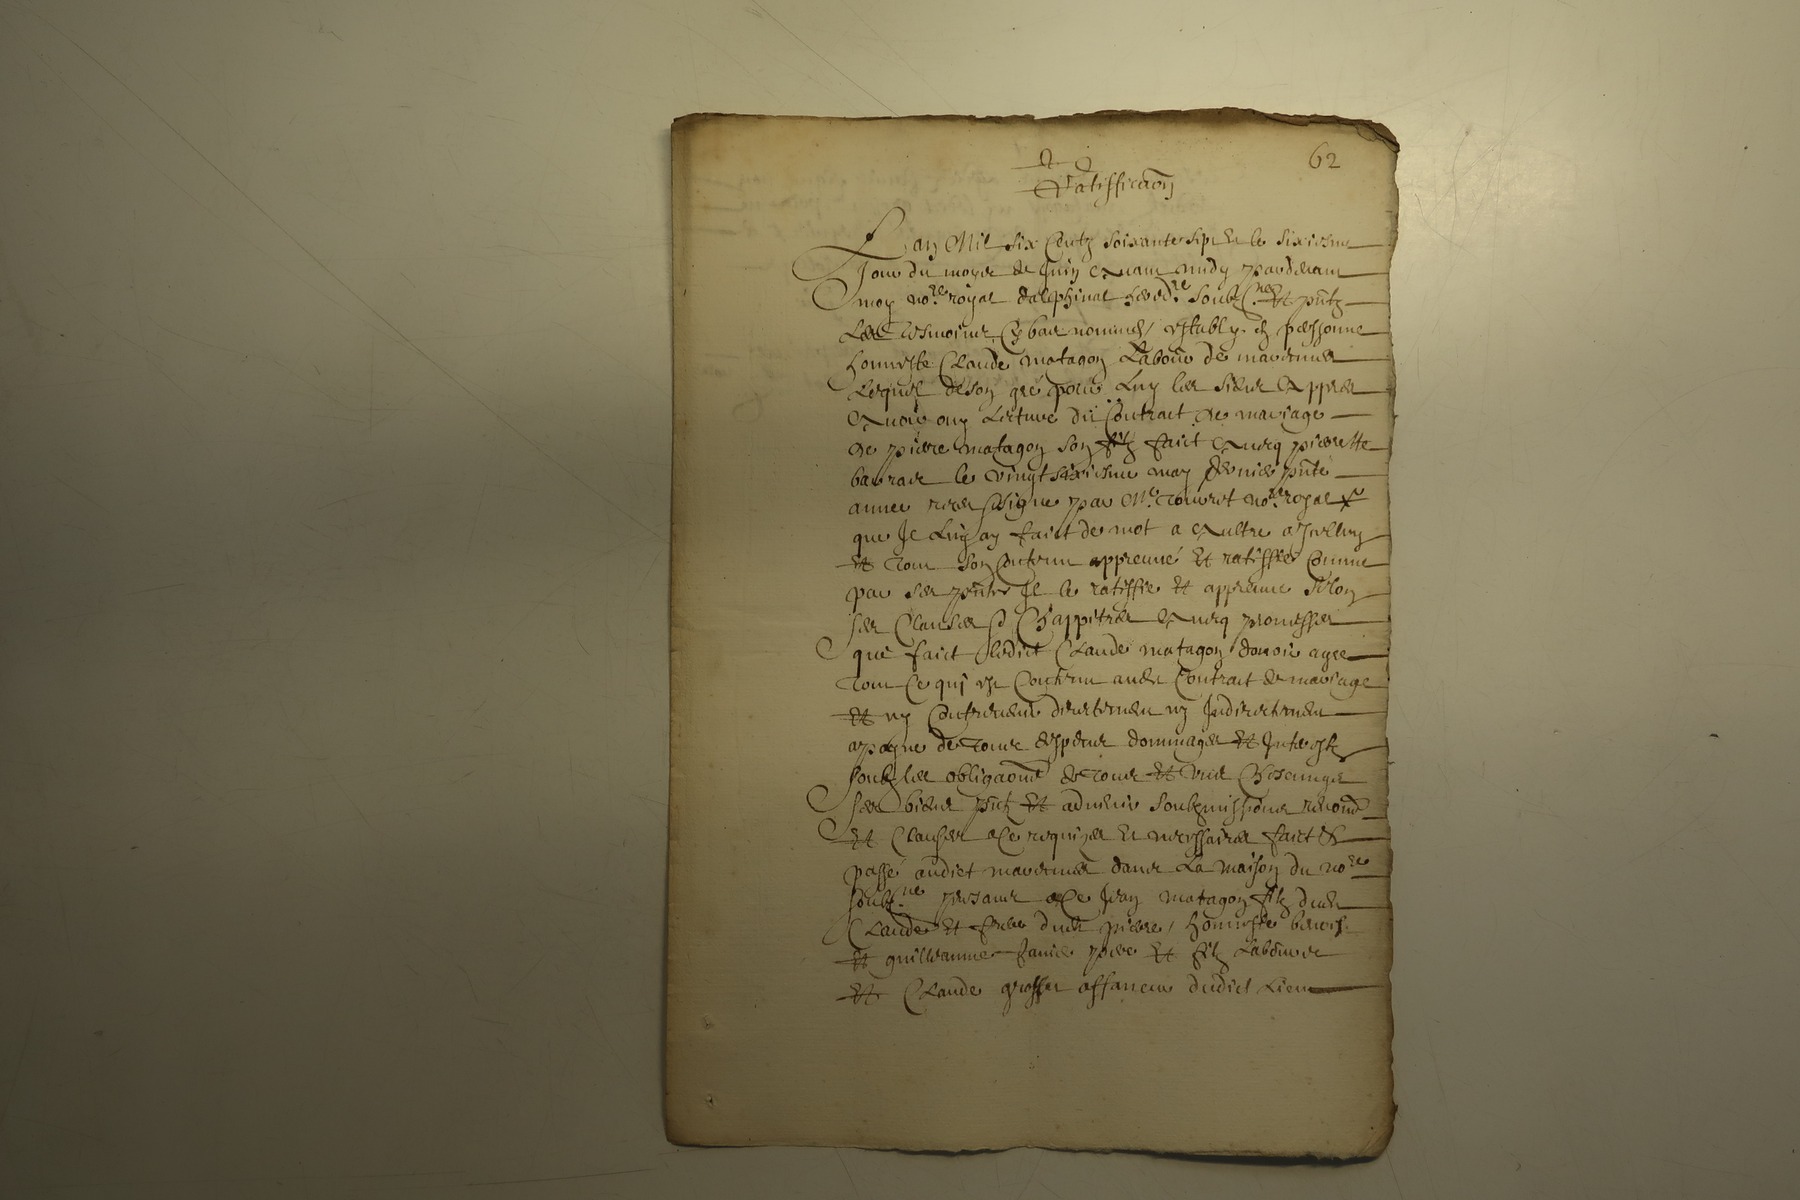 62
Ratiffica[ti]on
L an Mil six Centz soixante sept et le sixiesme
Jour du moys de Juin avant midy pardevant
moy no.re royal dalphinal hered.re soubz.ne et pntz
Les tesmoins Cy bas nommés, estably en personne
honneste Claude matagon Labour de
Lequel de son gré pour Luy les siens
avoir ouy Lecture du Contract de mariage
de pierre matagon son filz faict avecq pierrette
le vingt sixiesme may dernier pnte
annee par Me no.re royal
que Je Luy ay faict de mot a aultre a Jcelluy
et tout son Contenu appreuvé et ratiffié Comme
par ses pntes Il le ratiffie et appreuve selon
ses Clauses et Chappitres avecq promesses
que faict ledict Claude matagon davoir agre
tout Ce qui est Contenu audt Contract de mariage
et ny Contrevenir directement ny Indirectement
a payne de tous despens dommages et Interestz
soubz les obligaons de tous et
ses biens pntz et advenir soubzmissions renond
et Clauses a Ce requizes et necessaires faict et
passé audict dans La maison du no.re
soubz.ne presans a Ce Jean matagon filz dudt
Claude et frere dudt pierre, honneste
et guilleaume pere et filz Laboures
et Claude affaneur dudict Lieu